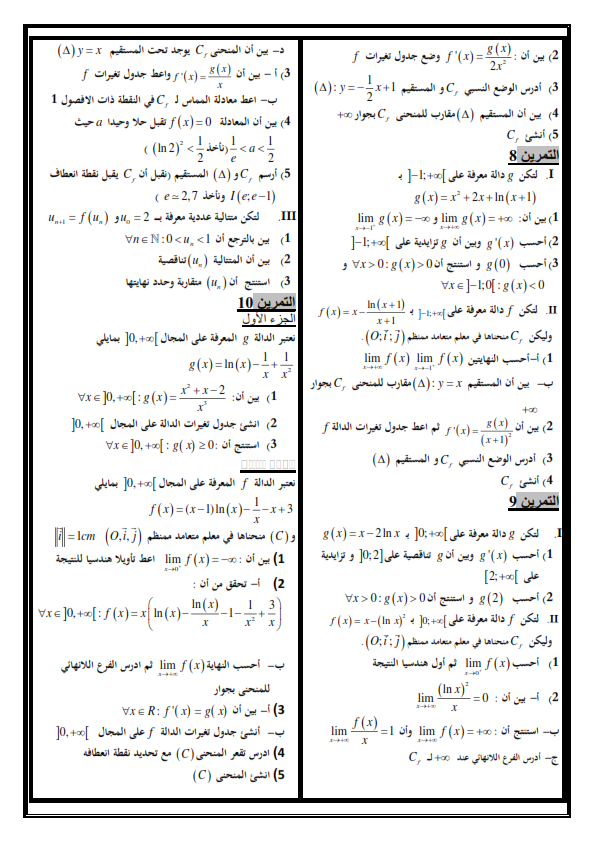 2) بين أن : f '(x) = g(x)/2x² وضع جدول تغيرات f
3) أدرس الوضع النسبي C_f و المستقيم (Δ): y = -1/2 x + 1
4) بين أن المستقيم (Δ) مقارب للمنحنى C_f بجوار +∞
5) أنشئ C_f
التمرين 8
I. لتكن g دالة معرفة على ]-1;+∞[ ب
g(x) = x² + 2x + ln(x+1)
1) بين أن: lim_{x→+∞} g(x) = +∞ و lim_{x→-1⁺} g(x) = -∞
2) أحسب g'(x) وبين أن g تزايدية على ]-1;+∞[
3) أحسب g(0) و استنتج أن ∀x > 0 : g(x) > 0 و
∀x ∈ ]-1;0[ : g(x) < 0
II. لتكن f دالة معرفة على ]-1;+∞[ ب f(x) = x - ln(x+1)/(x+1)
وليكن C_f منحناها في معلم متعامد ممنظم (O; i; j).
1) أ- أحسب النهايتين lim_{x→-1⁺} f(x) lim_{x→+∞} f(x)
ب- بين أن المستقيم (Δ): y = x مقارب للمنحنى C_f بجوار
+∞
2) بين أن f'(x) = g(x)/(x+1)² ثم اعط جدول تغيرات الدالة f
3) أدرس الوضع النسبي C_f و المستقيم (Δ)
4) أنشئ C_f
التمرين 9
I. لتكن g دالة معرفة على ]0;+∞[ ب g(x) = x - 2 ln x
1) أحسب g'(x) وبين أن g تناقصية على ]0;2] و تزايدية
على [2;+∞[
2) أحسب g(2) و استنتج أن ∀x > 0 : g(x) > 0
II. لتكن f دالة معرفة على ]0;+∞[ ب f(x) = x - (ln x)²
وليكن C_f منحناها في معلم متعامد ممنظم (O; i; j).
1) أحسب lim_{x→0⁺} f(x) ثم أول هندسيا النتيجة
2) أ- بين أن : lim_{x→+∞} (ln x)²/x = 0
ب- استنتج أن : lim_{x→+∞} f(x) = +∞ وأن lim_{x→+∞} f(x)/x = 1
ج- أدرس الفرع اللانهائي عند +∞ لـ C_f
د- بين أن المنحنى C_f يوجد تحت المستقيم (Δ) y = x
3) أ- بين أن f'(x) = g(x)/x واعط جدول تغيرات f
ب- اعط معادلة المماس لـ C_f في النقطة ذات الافصول 1
4) بين أن المعادلة f(x) = 0 تقبل حلا وحيدا a حيث
1/e < a < 1/2 (نأخذ (ln 2)² < 1/2)
5) أرسم C_f و (Δ) المستقيم (نقبل أن C_f يقبل نقطة انعطاف
I(e; e-1) ونأخذ e ≃ 2,7)
III. لتكن متتالية عددية معرفة بـ u_0 = 2 و u_{n+1} = f(u_n)
1) بين بالترجع أن ∀n ∈ ℕ : 0 < u_n < 1
2) بين أن المتتالية (u_n) تناقصية
3) استنتج أن (u_n) متقاربة وحدد نهايتها
التمرين 10
الجزء الأول
نعتبر الدالة g المعرفة على المجال ]0,+∞[ بمايلي
g(x) = ln(x) - 1/x + 1/x²
1) بين أن: ∀x ∈ ]0,+∞[ : g(x) = (x² + x - 2)/x³
2) انشئ جدول تغيرات الدالة على المجال ]0,+∞[
3) استنتج أن : ∀x ∈ ]0,+∞[ : g(x) ≥ 0
نعتبر الدالة f المعرفة على المجال ]0,+∞[ بمايلي
f(x) = (x-1)ln(x) - 1/x - x + 3
و (C) منحناها في معلم متعامد ممنظم (O,i,j) ‖i‖ = 1cm
1) بين أن : lim_{x→0⁺} f(x) = -∞ اعط تأويلا هندسيا للنتيجة
2) أ- تحقق من أن :
∀x ∈ ]0,+∞[ : f(x) = x( ln(x) - ln(x)/x - 1 - 1/x² + 3/x )
ب- أحسب النهاية lim_{x→+∞} f(x) ثم ادرس الفرع اللانهائي
للمنحنى بجوار
3) أ- بين أن ∀x ∈ R : f'(x) = g(x)
ب- أنشئ جدول تغيرات الدالة f على المجال ]0,+∞[
4) ادرس تقعر المنحنى (C) مع تحديد نقطة انعطافه
5) انشئ المنحنى (C)